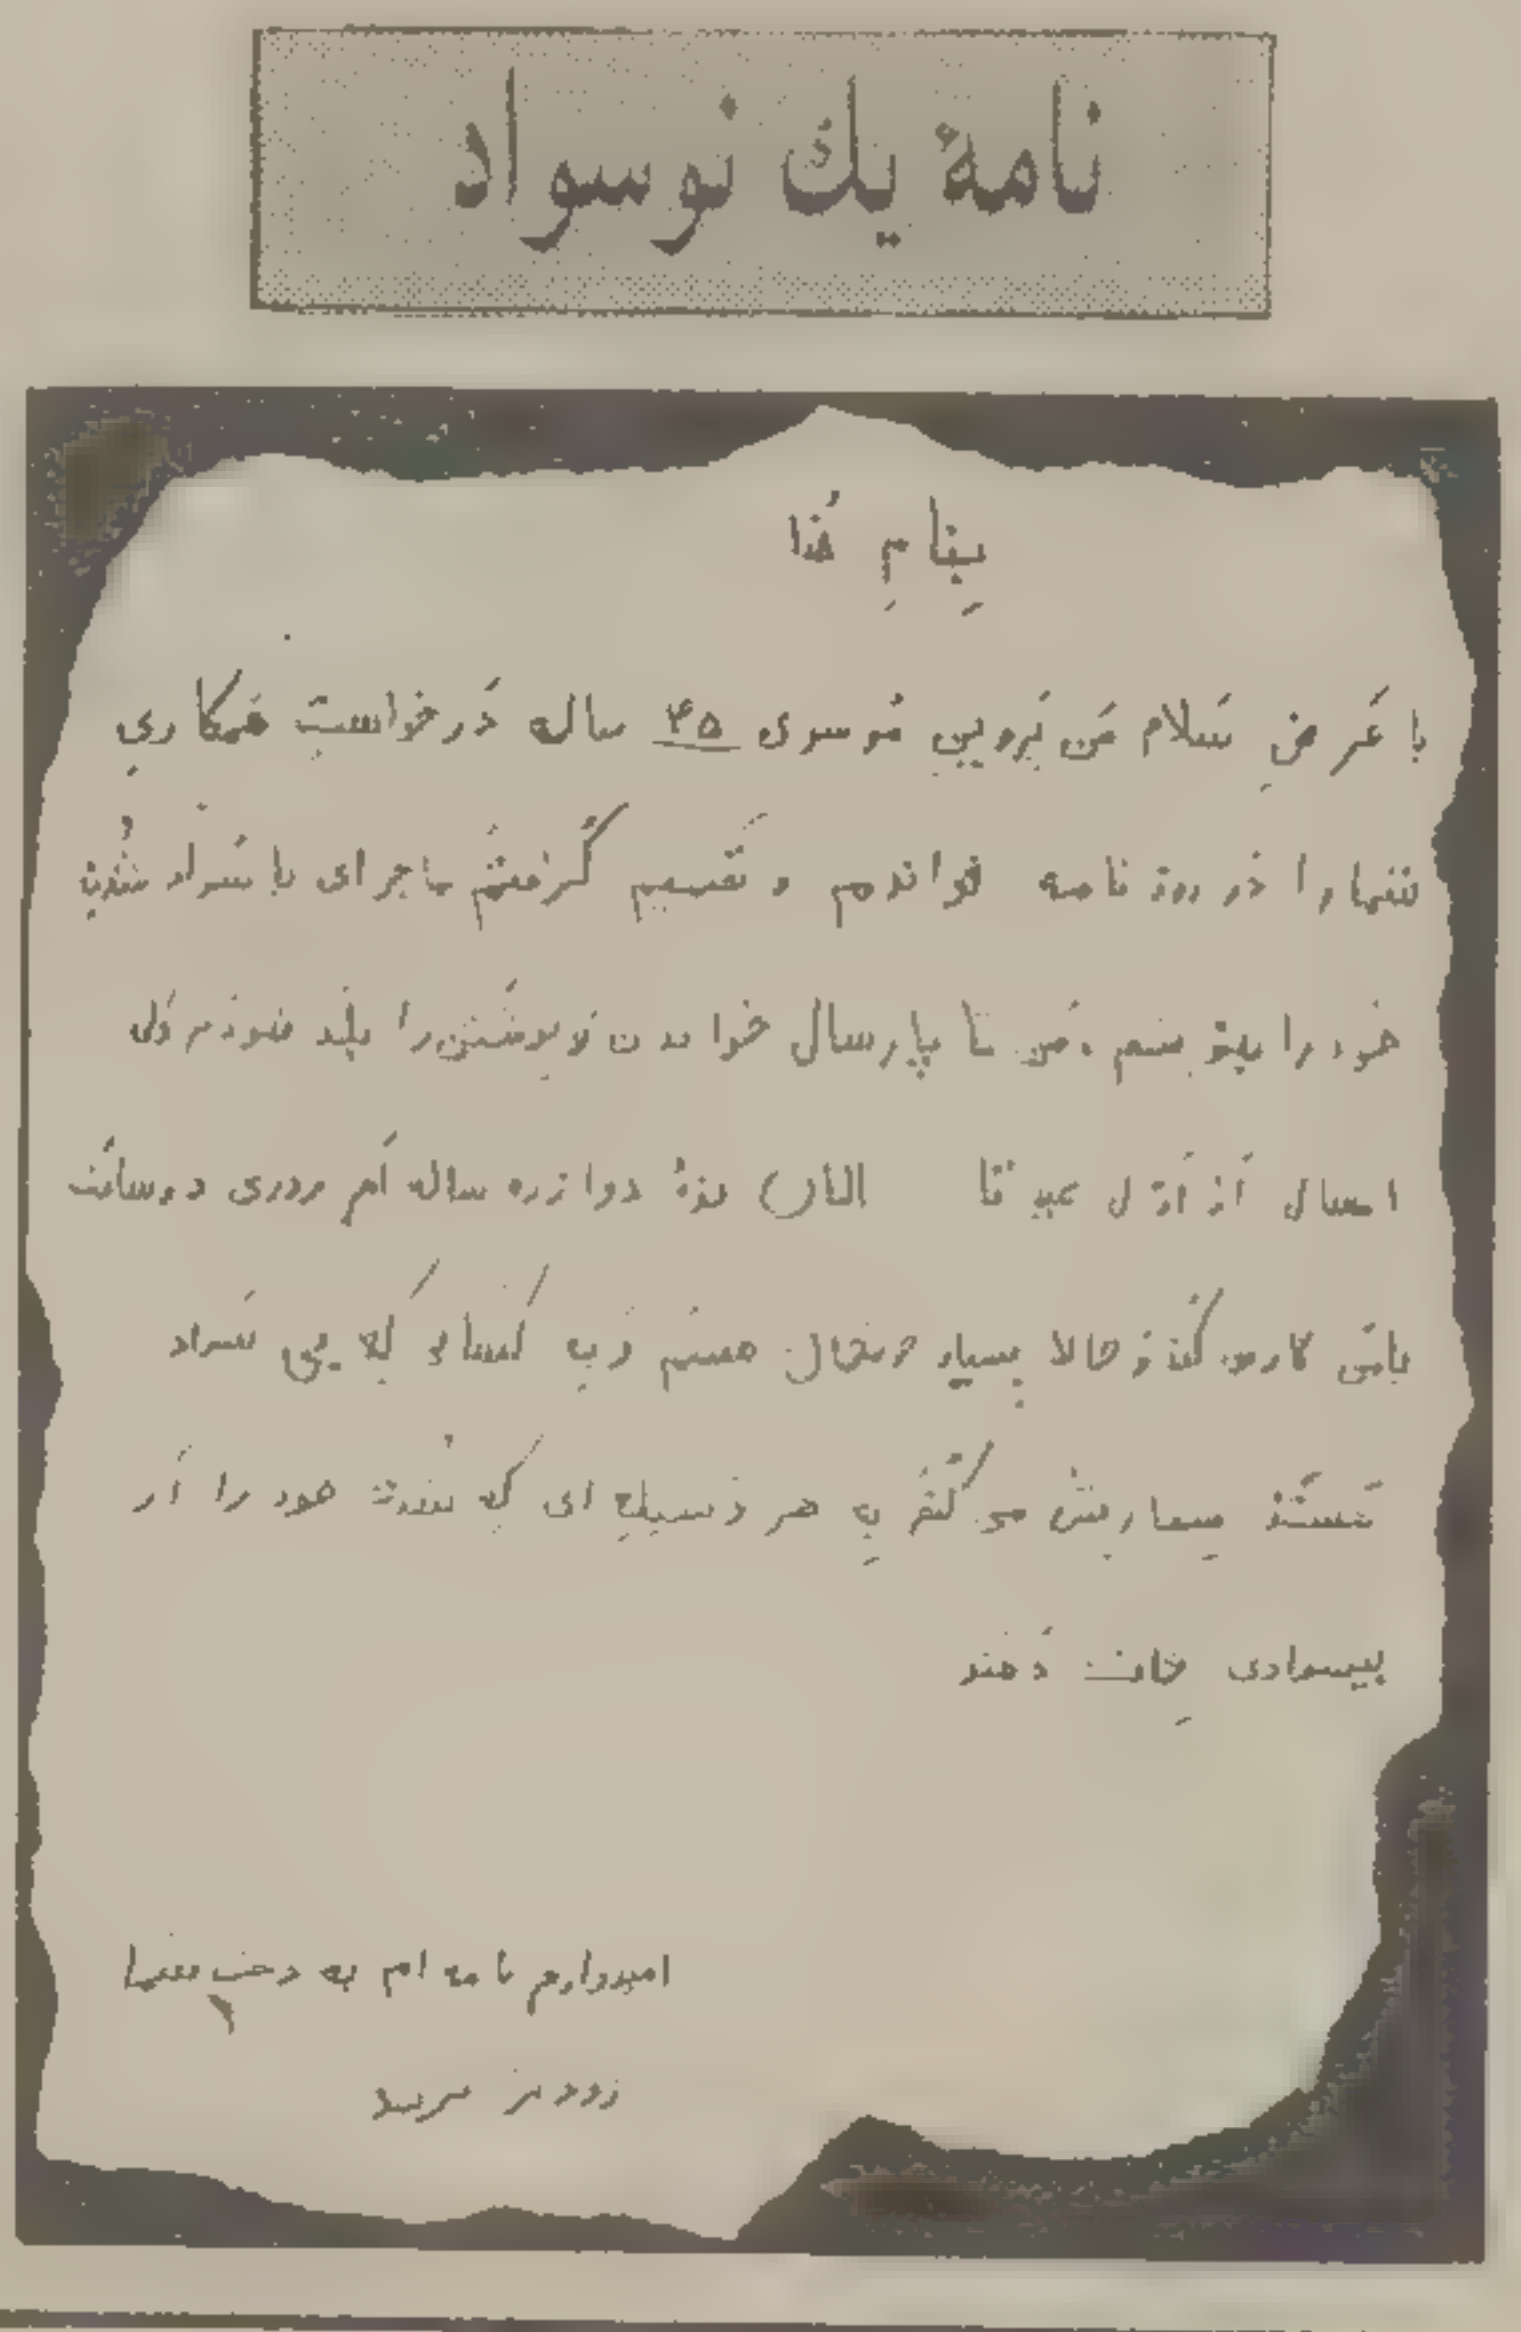 نامهٔ یك نوسواد
بِنامِ خُدا
با عَرضِ سَلام مَن پَروین موسوی ۴۵ ساله دَرخواست هَمکاری
شما را دَر روزنامه خواندم و تَصمیم گِرفتَم ماجرای با سَواد شُدن
خود را بنویسم. مَن تا پارسال خواندن و نوشتن را بلد نبودم ولی
امسال اَز اَوّل عید تا الان نوهٔ دوازده ساله اَم روزی دو ساعَت
با من کار می کند و حالا بسیار خوشحال هستم و به کسانی که بی سَواد
هَستَند سفارش می کنم بِه هر وَسیله ای که شده خود را اَز
بیسوادی نِجات دَهند
امیدوارم نامه ام به دست شما
زودتر برسد